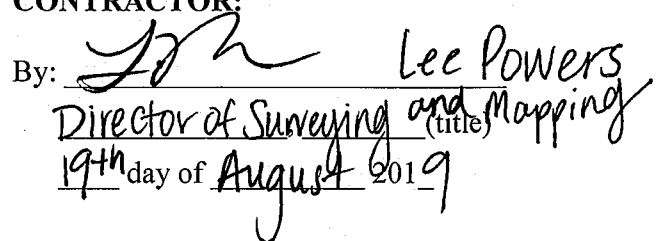 CONTRACTOR:
By: Lee Powers
Director of Surveying and Mapping (title)
19th day of August 2019